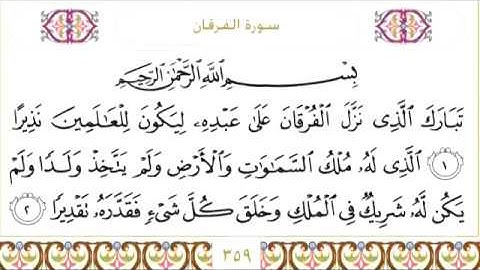 سورة الفرقان
بِسْمِ اللَّهِ الرَّحْمَٰنِ الرَّحِيمِ
تَبَارَكَ الَّذِي نَزَّلَ الْفُرْقَانَ عَلَىٰ عَبْدِهِ لِيَكُونَ لِلْعَالَمِينَ نَذِيرًا
١ الَّذِي لَهُ مُلْكُ السَّمَاوَاتِ وَالْأَرْضِ وَلَمْ يَتَّخِذْ وَلَدًا وَلَمْ
يَكُن لَّهُ شَرِيكٌ فِي الْمُلْكِ وَخَلَقَ كُلَّ شَيْءٍ فَقَدَّرَهُ تَقْدِيرًا ٢
٣٥٩